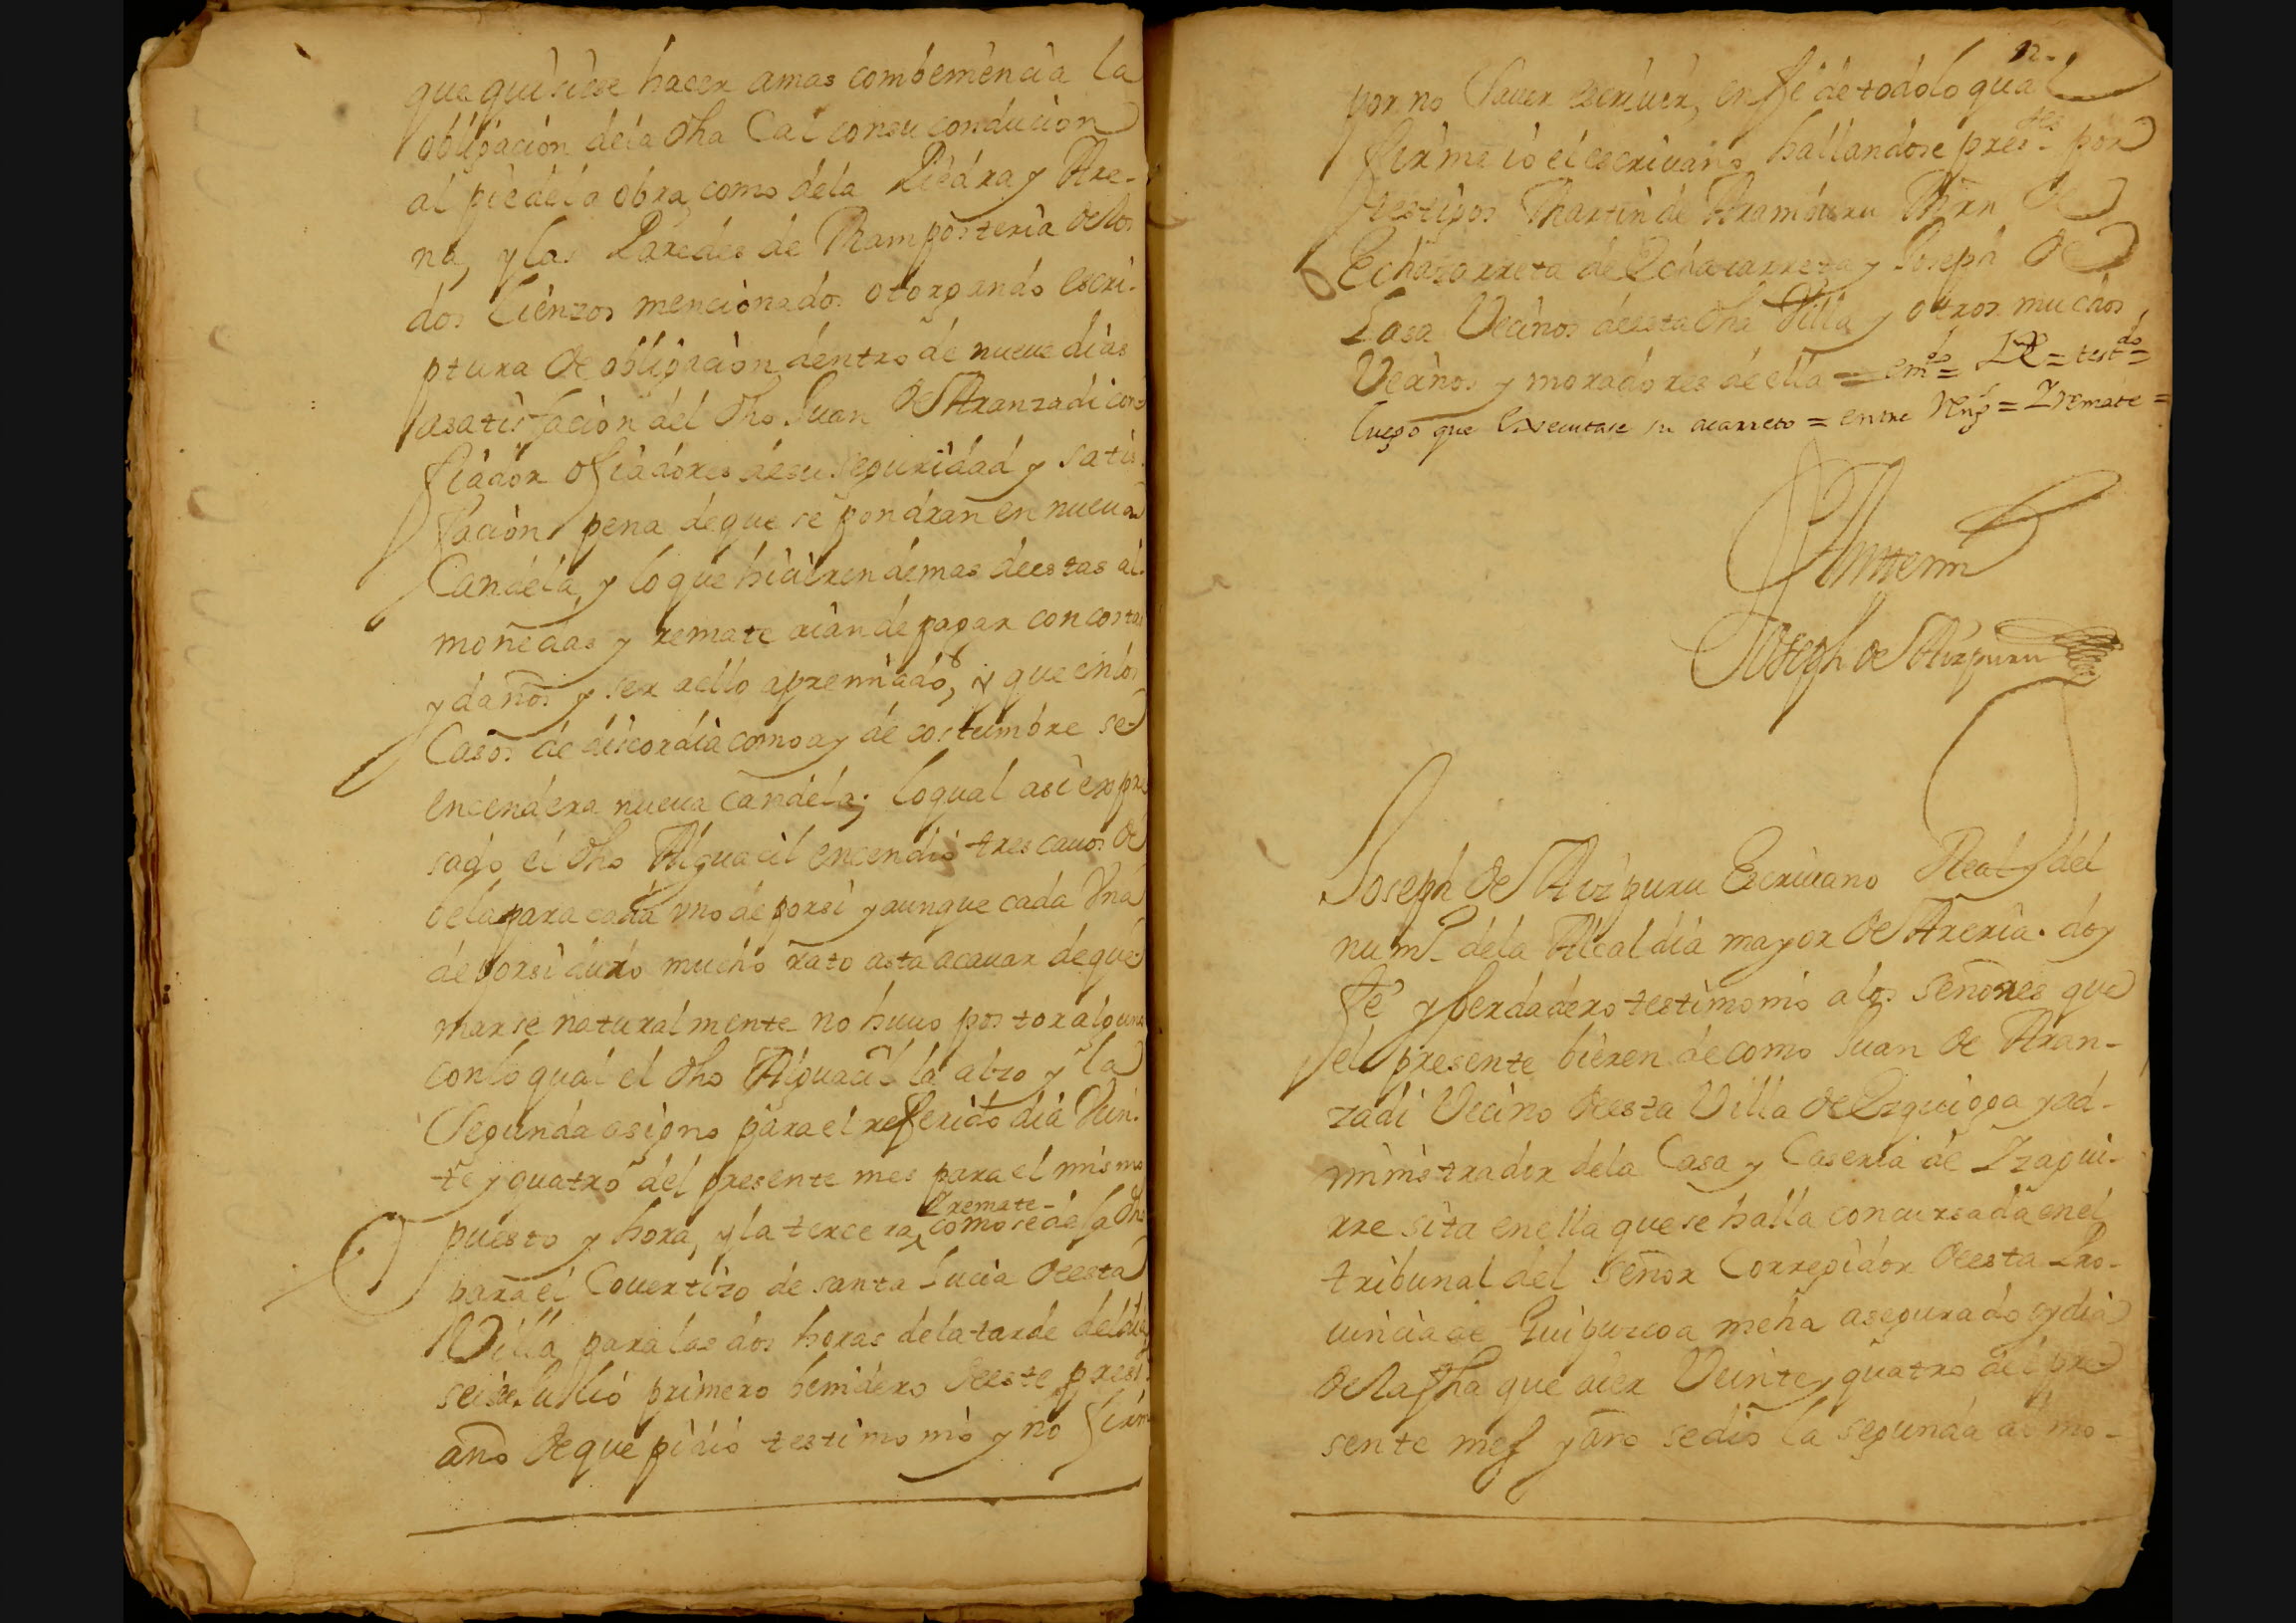 que quisiese hacer amas combeniencia la
obligacion dela dha Cal consu conducion
al piedela obra como dela Piedra y Are-
na, y las Paredes de Mamposteria delos
dos Lienzos mencionados otorgando escri-
ptura de obligacion dentro de nueve dias
asatisfacion del dho Juan de Aranzadi con
fiador o fiadores desu seguridad y satis-
facion, pena deque se pondran en nueva
Candela, y loque hicieren demas deestas al-
monedas y remate aian de pagar con costas
y daños y ser aello apremiados, y que enlos
Casos de discordia como ay de costumbre se
encendera nueva candela; loqual asi expre
sado el dho Alguacil encendio tres cavos de
bela para cada uno de porsi y aunque cada Una
de porsi duro mucho rato asta acavar deque
marse naturalmente no huvo postor alguno
conloqual el dho Alguacil la alzo y la
Segunda asigno para el referido dia Vein-
te y quatro del presente mes para el mismo
puesto y hora, y la tercera, como sedela dha
Yremate-
para el Covertizo de santa Lucia deesta
Villa para las dos horas dela tarde del dia
seis de Julio primero benidero deeste prest
año de que pidio testimonio y no firm
12-
por no Saver escriver, en fe de todolo qual
firme io el escrivano, hallandose pres.tes por
testigos Martin de Aramburu Mrn de
Echasarreta de Echasarreta y Joseph de
Lasa Vecinos deesta dha Villa y otros muchos
Vecinos y moradores de ella = em.do = = test.do =
luego que executase su acarreto = entre Reng.s = Yremate =
Joseph de Aizpuru
Joseph de Aizpuru Escrivano Real y del
num.o dela Alcaldia mayor de Areria. doy
fe y berdadero testimonio alos señores que
el presente bieren decomo Juan de Aran-
zadi Vecino deesta Villa de Ezquioga y ad-
ministrador dela Casa y Caseria de Yzagui-
rre sita enella que se halla concursada enel
tribunal del Señor Corregidor deesta Pro-
vincia de Guipuzcoa meha asegurado oy dia
dela fha que aier Veinte y quatro del pre
sente mes y año sedio la segunda almo-